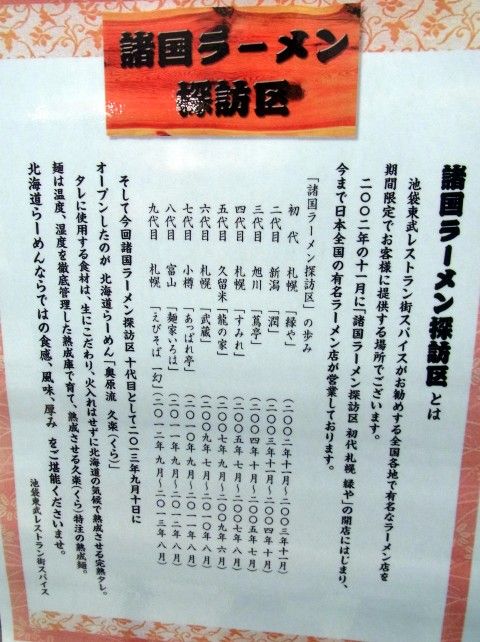 諸国ラーメン
探訪区
諸国ラーメン探訪区とは
池袋東武レストラン街スパイスがお勧めする全国各地で有名なラーメン店を
期間限定でお客様に提供する場所でございます。
二〇〇二年の十一月に「諸国ラーメン探訪区 初代 札幌 縁や」の開店にはじまり、
今まで日本全国の有名ラーメン店が営業しております。
「諸国ラーメン探訪区」の歩み
初代 札幌「縁や」(二〇〇二年十一月～二〇〇三年十一月)
二代目 新潟「潤」(二〇〇三年十一月～二〇〇四年十月)
三代目 旭川「蔦亭」(二〇〇四年十月～二〇〇五年七月)
四代目 札幌「すみれ」(二〇〇五年七月～二〇〇七年八月)
五代目 久留米「龍の家」(二〇〇七年九月～二〇〇九年六月)
六代目 札幌「武蔵」(二〇〇九年七月～二〇一〇年八月)
七代目 小樽「あっぱれ亭」(二〇一〇年九月～二〇一一年八月)
八代目 富山「麺家いろは」(二〇一一年九月～二〇一二年八月)
九代目 札幌「えびそば 一幻」(二〇一二年九月～二〇一三年八月)
そして今回諸国ラーメン探訪区 十代目として二〇一三年九月十日に
オープンしたのが 北海道らーめん「奥原流 久楽(くら)」
タレに使用する食材は、生にこだわり、火入れはせずに北海道の気候で熟成させる完熟タレ。
麺は温度、湿度を徹底管理した熟成庫で育て、熟成させる久楽(くら)特注の熟成麺。
北海道らーめんならではの食感、風味、厚み をご堪能くださいませ。
池袋東武レストラン街スパイス